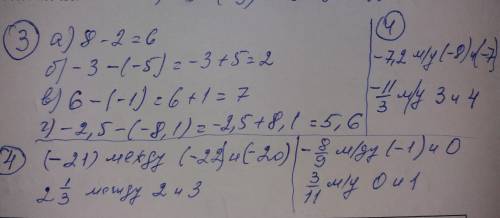 ③ а) 8 - 2 = 6
б) -3 - (-5) = -3 + 5 = 2
в) 6 - (-1) = 6 + 1 = 7
г) -2,5 - (-8,1) = -2,5 + 8,1 = 5,6
④
-7,2 м/у (-8) и (-7)
-11/3 м/у 3 и 4
④ (-21) между (-22) и (-20)
2 1/3 между 2 и 3
-8/9 м/ду (-1) и 0
3/11 м/у 0 и 1